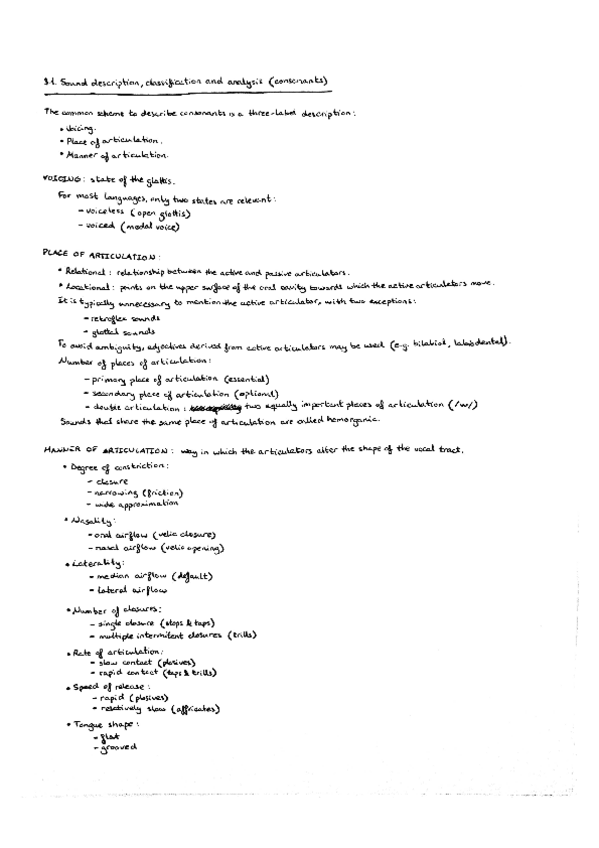 3.1. Sound description, classification and analysis (consonants)
The common scheme to describe consonants is a three-label description:
• Voicing.
• Place of articulation.
• Manner of articulation.
VOICING: state of the glottis.
For most languages, only two states are relevant:
- voiceless (open glottis)
- voiced (modal voice)
PLACE OF ARTICULATION:
• Relational: relationship between the active and passive articulators.
• Locational: points on the upper surface of the oral cavity towards which the active articulators move.
It is typically unnecessary to mention the active articulator, with two exceptions:
- retroflex sounds
- glottal sounds
To avoid ambiguity, adjectives derived from active articulators may be used (e.g. bilabial, labiodental).
Number of places of articulation:
- primary place of articulation (essential)
- secondary place of articulation (optional)
- double articulation: two equally important places of articulation (/w/)
Sounds that share the same place of articulation are called homorganic.
MANNER OF ARTICULATION: way in which the articulators alter the shape of the vocal tract.
• Degree of constriction:
- closure
- narrowing (friction)
- wide approximation
• Nasality:
- oral airflow (velic closure)
- nasal airflow (velic opening)
• Laterality:
- median airflow (default)
- lateral airflow
• Number of closures:
- single closure (stops & taps)
- multiple intermitent closures (trills)
• Rate of articulation:
- slow contact (plosives)
- rapid contact (taps & trills)
• Speed of release:
- rapid (plosives)
- relatively slow (affricates)
• Tongue shape:
- flat
- grooved